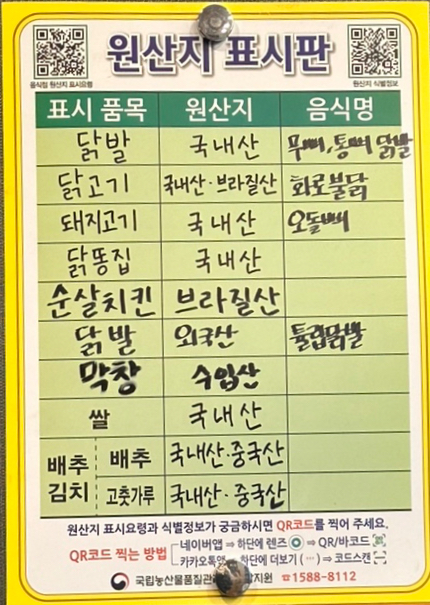 원산지 표시판
음식점 원산지 표시요령
원산지 식별정보
표시 품목 원산지 음식명
닭발 국내산 무뼈,통뼈 닭발
닭고기 국내산·브라질산 화로불닭
돼지고기 국내산 오돌뼈
닭똥집 국내산
순살치킨 브라질산
닭발 외국산 튤립닭발
막창 수입산
쌀 국내산
배추김치 배추 국내산·중국산
고춧가루 국내산·중국산
원산지 표시요령과 식별정보가 궁금하시면 QR코드를 찍어 주세요.
QR코드 찍는 방법
네이버앱 ⇒ 하단에 렌즈 ⇒ QR/바코드
카카오톡앱 ⇒ 하단에 더보기 (···) ⇒ 코드스캔
국립농산물품질관리 지원 ☎1588-8112